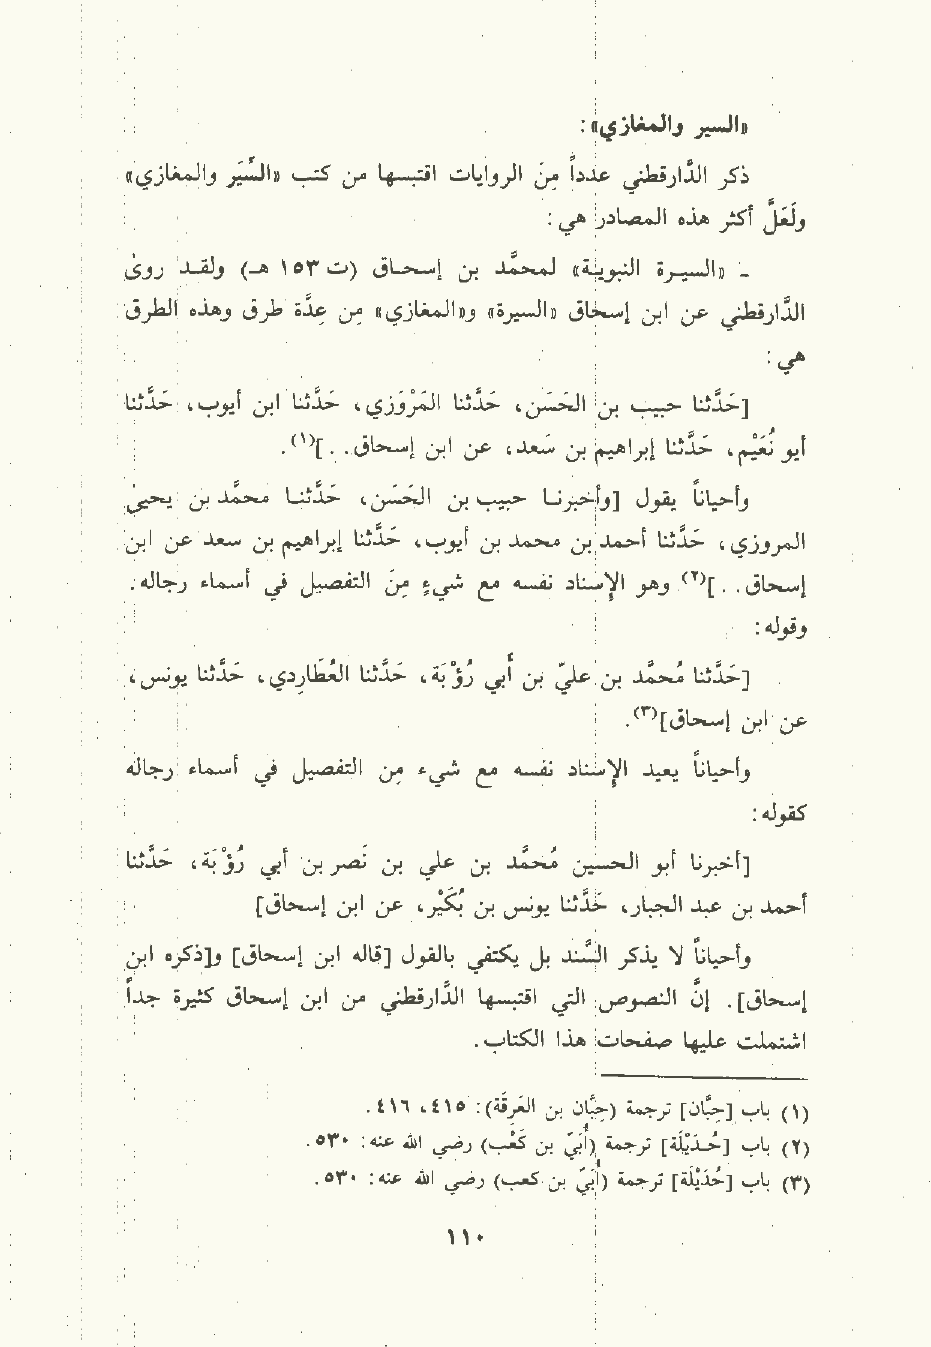 «السير والمغازي»:
ذكر الدَّارقطني عدداً مِنَ الروايات اقتبسها من كتب «السِّيَر والمغازي»
ولَعَلَّ أكثر هذه المصادر هي:
- «السيرة النبوية» لمحمَّد بن إسحاق (ت ١٥٣ هـ) ولقد روىٰ
الدَّارقطني عن ابن إسحاق «السيرة» و«المغازي» مِن عِدَّة طرق وهذه الطرق
هي:
[حَدَّثنا حبيب بن الحَسَن، حَدَّثنا المَرْوَزي، حَدَّثنا ابن أيوب، حَدَّثنا
أبو نُعَيْم، حَدَّثنا إبراهيم بن سَعد، عن ابن إسحاق. . ](١).
وأحياناً يقول [وأخبرنا حبيب بن الحَسَن، حَدَّثنا محمَّد بن يحيىٰ
المروزي، حَدَّثنا أحمد بن محمد بن أيوب، حَدَّثنا إبراهيم بن سعد عن ابن
إسحاق. . ](٢) وهو الإسناد نفسه مع شيءٍ مِنَ التفصيل في أسماء رجاله.
وقوله:
[حَدَّثنا مُحمَّد بن عليّ بن أبي رُؤْبَة، حَدَّثنا العُطَارِدي، حَدَّثنا يونس،
عن ابن إسحاق](٣).
وأحياناً يعيد الإسناد نفسه مع شيء مِن التفصيل في أسماء رجاله
كقوله:
[أخبرنا أبو الحسين مُحمَّد بن علي بن نَصر بن أبي رُؤْبَة، حَدَّثنا
أحمد بن عبد الجبار، حَدَّثنا يونس بن بُكَيْر، عن ابن إسحاق]
وأحياناً لا يذكر السَّند بل يكتفي بالقول [قاله ابن إسحاق] و[ذكره ابن
إسحاق]. إنَّ النصوص التي اقتبسها الدَّارقطني من ابن إسحاق كثيرة جداً
اشتملت عليها صفحات هذا الكتاب.
(١) باب [حِبَّان] ترجمة (حِبَّان بن العَرِقَة): ٤١٥، ٤١٦.
(٢) باب [حُـدَيْلَة] ترجمة (أُبَيّ بن كَعْب) رضي الله عنه: ٥٣٠.
(٣) باب [حُدَيْلَة] ترجمة (أُبَيّ بن كعب) رضي الله عنه: ٥٣٠.
١١٠